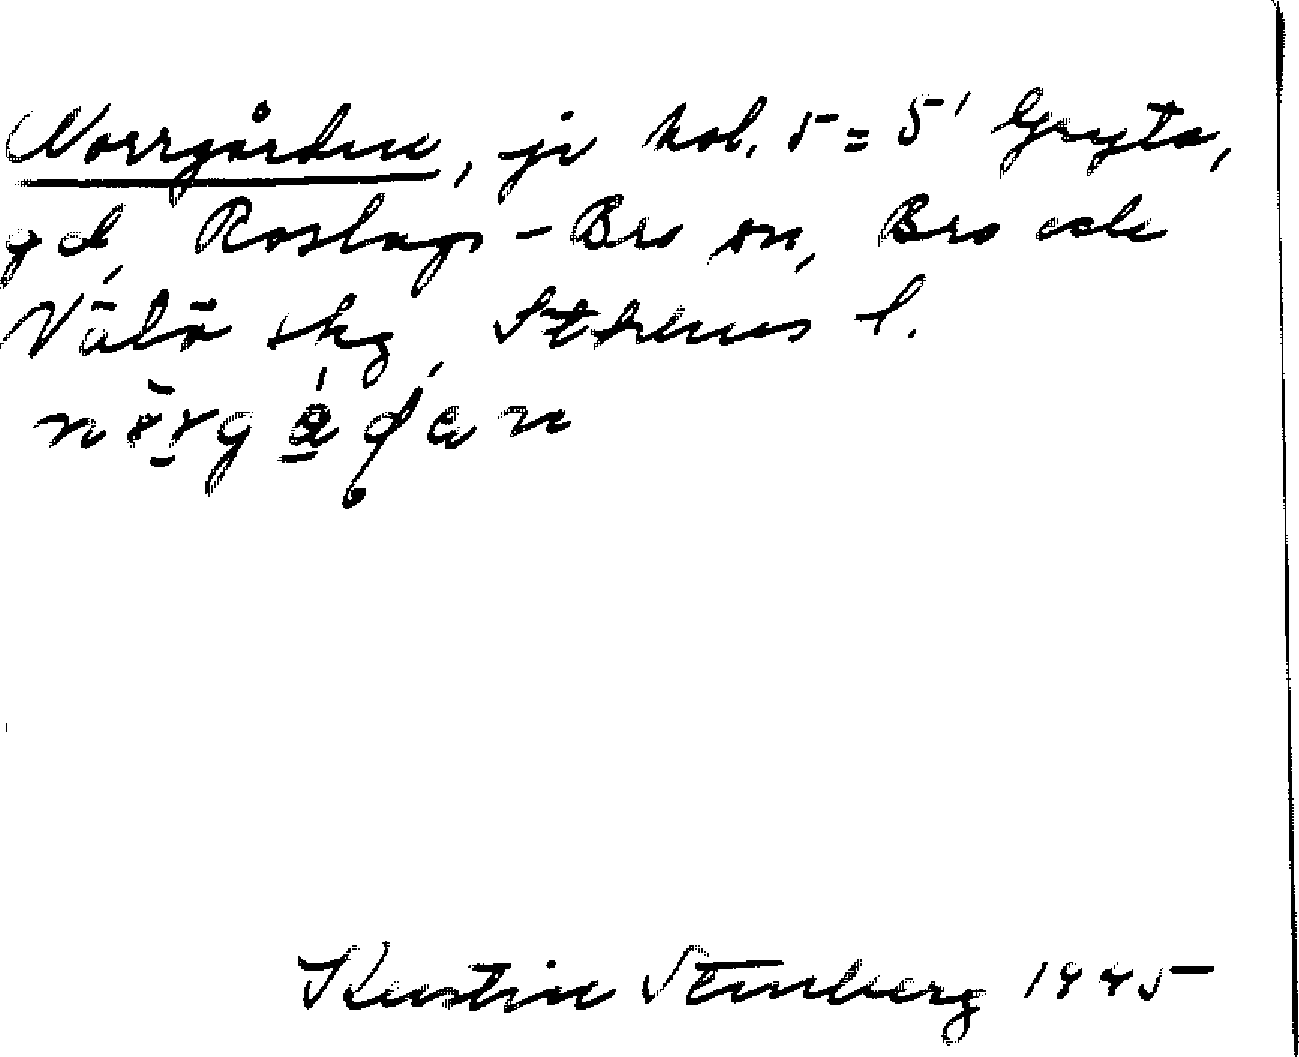 Norrgården, je kol. 5 = 5¹ Gryta,
gd, Roslags-Bro sn, Bro och
Vätö skg, Sthlms l.
Kerstin Stenberg 1945